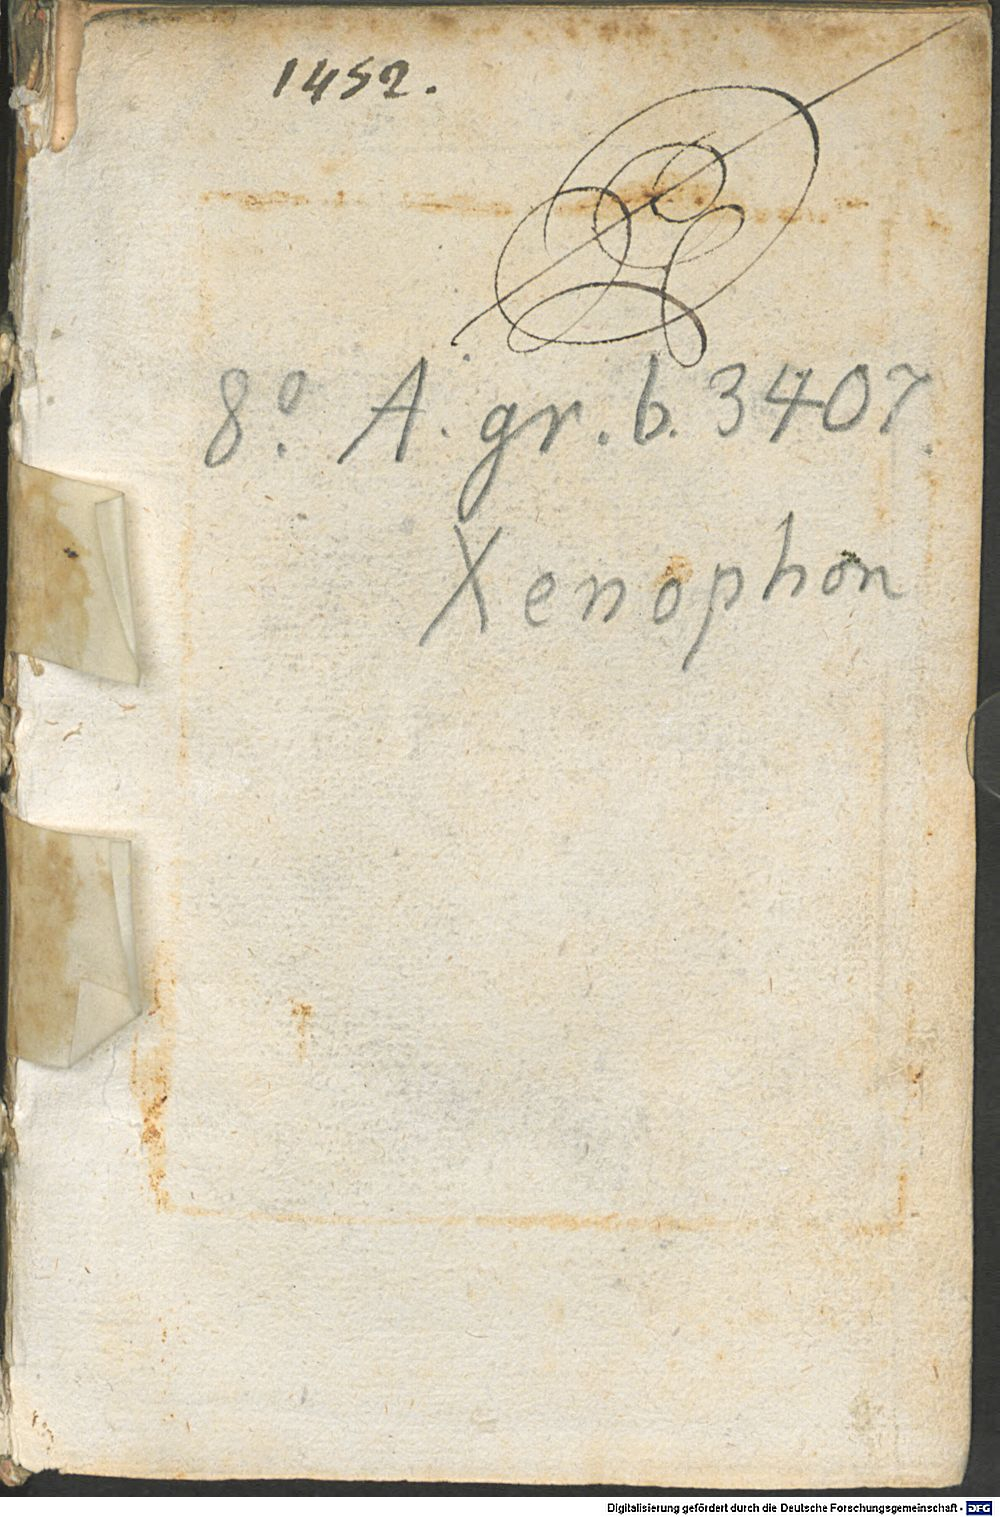 1452.
8º. A. gr. b. 3407.
Xenophon
Digitalisierung gefördert durch die Deutsche Forschungsgemeinschaft - DFG